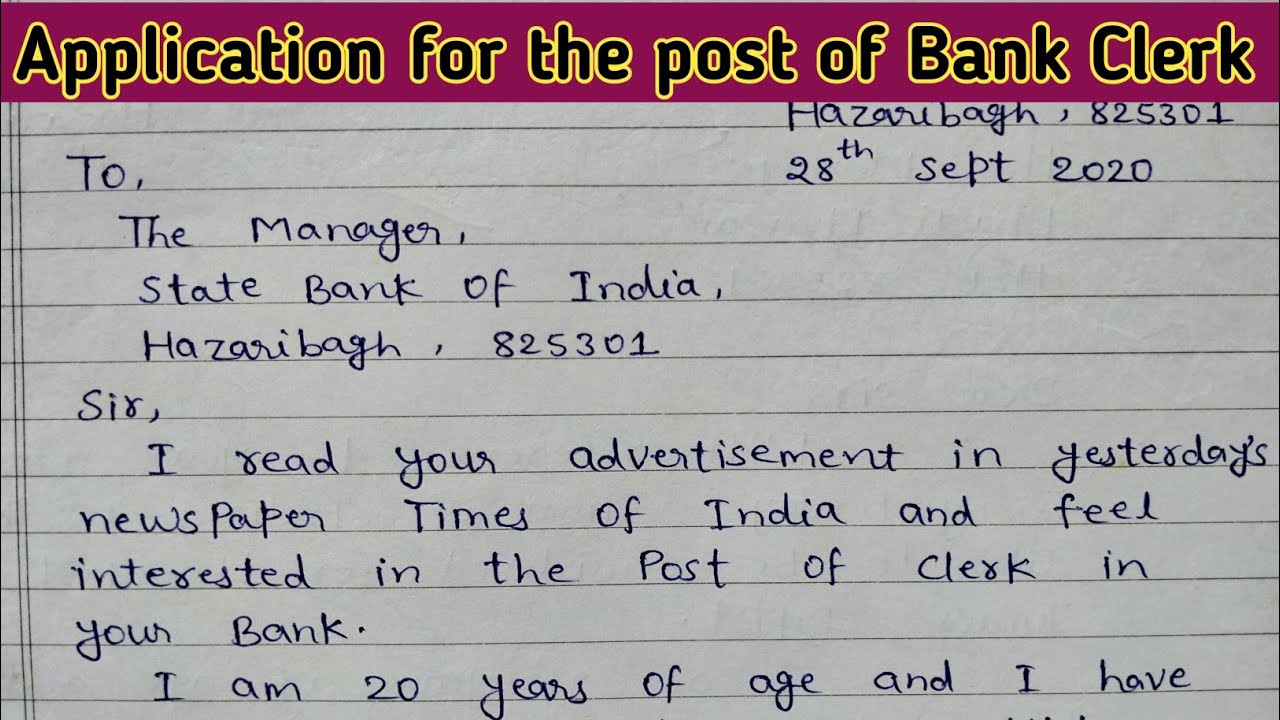 Application for the post of Bank Clerk
Hazaribagh, 825301
28th Sept 2020
To,
The Manager,
State Bank of India,
Hazaribagh, 825301
Sir,
I read your advertisement in yesterday's
newspaper Times of India and feel
interested in the Post of Clerk in
your Bank.
I am 20 years of age and I have